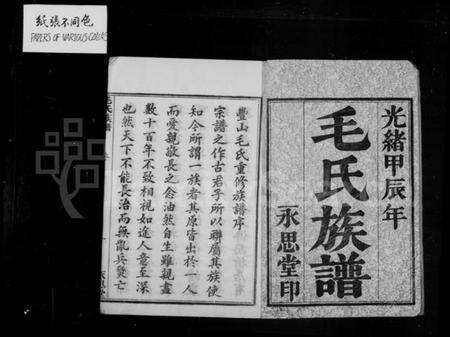 紙張不同色
PAPERS OF VARIOUS COLORS
光緒甲辰年
毛氏族譜
永思堂印
豐山毛氏重修族譜序
宗譜之作古君子所以聯屬其族使
知今所謂一族者其原皆出於一人
而愛親敬長之念油然自生雖親盡
數十百年不致相視如途人意至深
也然天下不能長治而無散兵燹亡